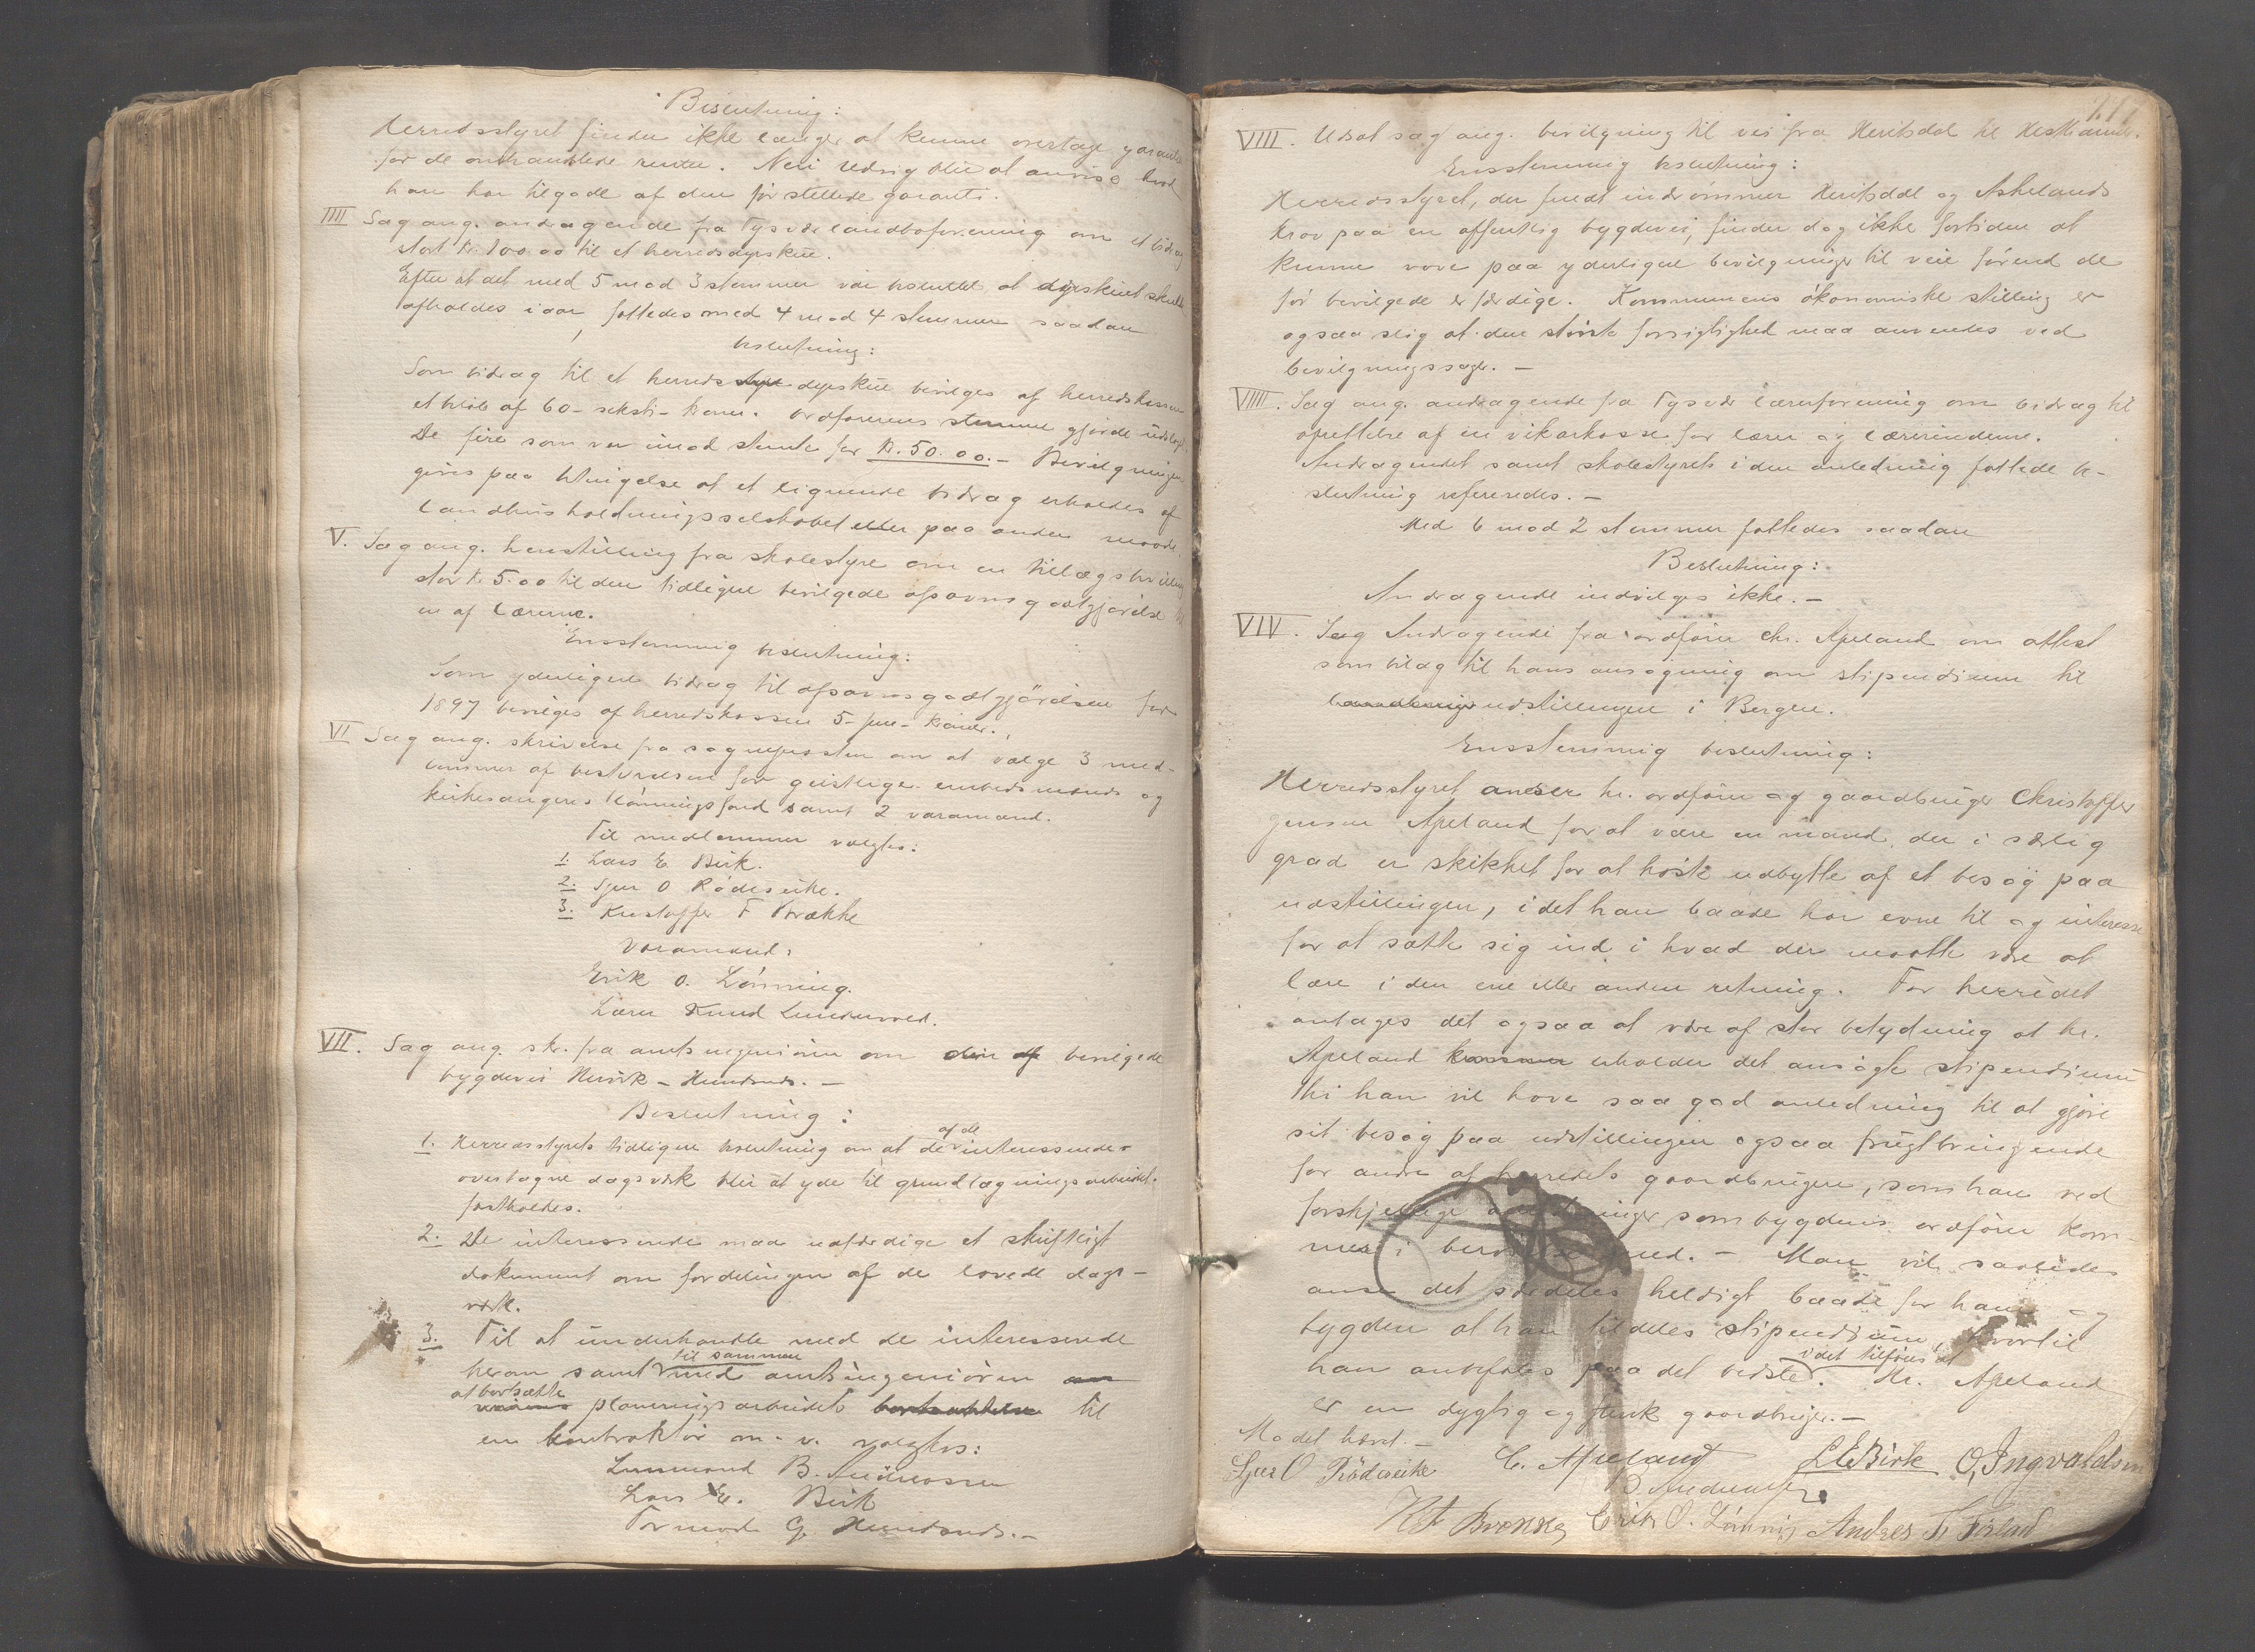 Beslutning:
Herredsstyret finder ikke længer at kunne overtage garantie
for de omhandlede renter. Nevi Ledvig blir at anvise hvad
han har tilgode af den før stillede garanti.
IIII Sag ang. andragende fra Tysvær landboforening om et bidrag
stort Kr. 100.00 til et herredsdyrskue.
Efter at det med 5 mod 3 stemmer var besluttet at dyrskuet skulde
afholdes iaar, fattedes med 4 mod 4 stemmer saadan
beslutning:
Som bidrag til et herreds dyrskue bevilges af herredskassen
et beløb af 60 - seksti - kroner. Ordførerens stemme gjorde udslaget.
De fire som var imod stemte for Kr. 50.00. - Bevilgningen
gives paa betingelse at et lignende bidrag erholdes af
landhusholdningsselskabet eller paa anden maade.
V. Sag ang. henstilling fra skolestyre om en tillægsbevilling
stor Kr 5.00 til den tidligere bevilgede opsavnsgodtgjørelse til
en af lærerne.
Enstemmig beslutning:
Som yderligere bidrag til opsavnsgodtgjørelsen for
1897 bevilges af herredskassen 5 - fem - Kroner.
VI Sag ang. skrivelse fra sogneprosten om at vælge 3 med-
lemmer af bestyrelsen for geistlige embedsmænds og
kirkesangeres lønningsfond samt 2 varamænd.
Til medlemmer valgtes:
1. Lars E. Birk.
2. Sjur O Rødseike.
3. Kristoffer F Brække
Varamænd:
Erik O. Lønning.
Lærer Knud Lundervold.
VII. Sag ang. skr. fra amtsingeniøren om den bevilgede
bygdevei Hervik - Hundsnes. -
Beslutning:
1. Herredsstyrets tidligere beslutning om at de af de interesserede
overtagne dagsværk blir at yde til grundlægningsarbeidet
fastholdes.
2. De interesserede maa udfærdige et skriftligt
dokument om fordelingen af de lovede dags-
værk.
3. Til at underhandle med de interesserede
herom samt til sammen med amtsingeniøren
at bortsætte planeringsarbeidet til
en kontraktør m. v. valgtes:
Lensmand B. Andreassen
Lars E. Birk
Tormod G. Hundsnes. -
VIII. Udsat sag ang. bevilgning til vei fra Heritsdal til
Enstemmig beslutning:
Herredsstyret, der fuldt indrømmer Heritsdal og Askelands
krav paa en offentlig bygdevei, finder dog ikke fortiden at
kunne vove paa yderligere bevilgninger til veie førend de
før bevilgede er færdige. Kommunens økonomiske stilling er
ogsaa slig at den største forsigtighed maa anvendes ved
bevilgningssager. -
VIIII. Sag ang. andragende fra Tysvær lærerforening om bidrag til
oprettelse af en vikarkasse for lærer og lærerinderne.
Andragendet samt skolestyrets i den anledning fattede be-
slutning refereredes. -
Med 6 mod 2 stemmer fattedes saadan
Beslutning:
Andragende indvilges ikke. -
VIV. Sag Andragende fra ordfører Chr. Apeland om attest
som bilag til hans ansøgning om stipendium til
udstillingen i Bergen.
Enstemmig beslutning:
Herredsstyret anser hr. ordfører og gaardbruger Christoffer
Jensen Apeland for at være en mand, der i særlig
grad er skikket for at høste udbytte af et besøg paa
udstillingen, idet han baade har evne til og interesse
for at sætte sig ind i hvad der maatte være at
lære i den ene eller anden retning. For herredet
antages det ogsaa at være af stor betydning at hr.
Apeland erholder det ansøgte stipendium
thi han vil have saa god anledning til at gjøre
sit besøg paa udstillingen ogsaa frugtbringende
for andre af herredets gaardbrugere, som han ved
forskjellige anledninger som bygdens ordfører kom-
mer i berørelse med. - Man vil saaledes
anse det særdeles heldigt baade for ham og
bygden at han tildeles stipendium, hvortil
han anbefales paa det bedste. idet tilføies at Hr. Apeland
er en dygtig og flink gaardbruger. -
Mødet hævet. -
Sjur O Rødseike C. Apeland L E Birk O, Ingvaldsen
B. Andreassen
K F Brekke Erik O. Lønning Andres T.